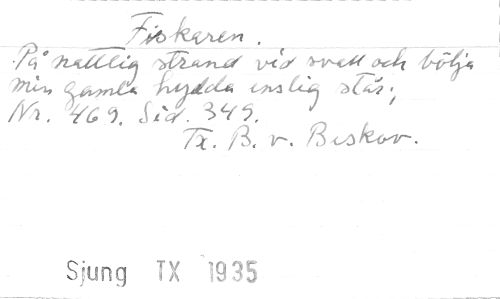 Fiskaren.
På nattlig strand vid svall och bölja
min gamla hydda enslig står;
Nr. 469. Sid. 349.
Tx. B. v. Beskow.
Sjung TX 1935